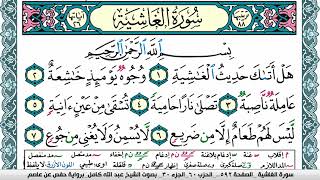 ترتيبها ٨٨ سُورَةُ الْغَاشِيَةِ آياتها ٢٦
بِسْمِ اللَّهِ الرَّحْمَٰنِ الرَّحِيمِ
هَلْ أَتَىٰكَ حَدِيثُ ٱلْغَـٰشِيَةِ ١ وُجُوهٌ يَوْمَئِذٍ خَـٰشِعَةٌ ٢
عَامِلَةٌ نَّاصِبَةٌ ٣ تَصْلَىٰ نَارًا حَامِيَةً ٤ تُسْقَىٰ مِنْ عَيْنٍ ءَانِيَةٍ ٥
لَّيْسَ لَهُمْ طَعَامٌ إِلَّا مِن ضَرِيعٍ ٦ لَّا يُسْمِنُ وَلَا يُغْنِى مِن جُوعٍ ٧
سورة الغاشية الصفحة ٥٩٢ الحزب ٦٠ الجزء ٣٠ بصوت الشيخ عبد الله كامل برواية حفص عن عاصم